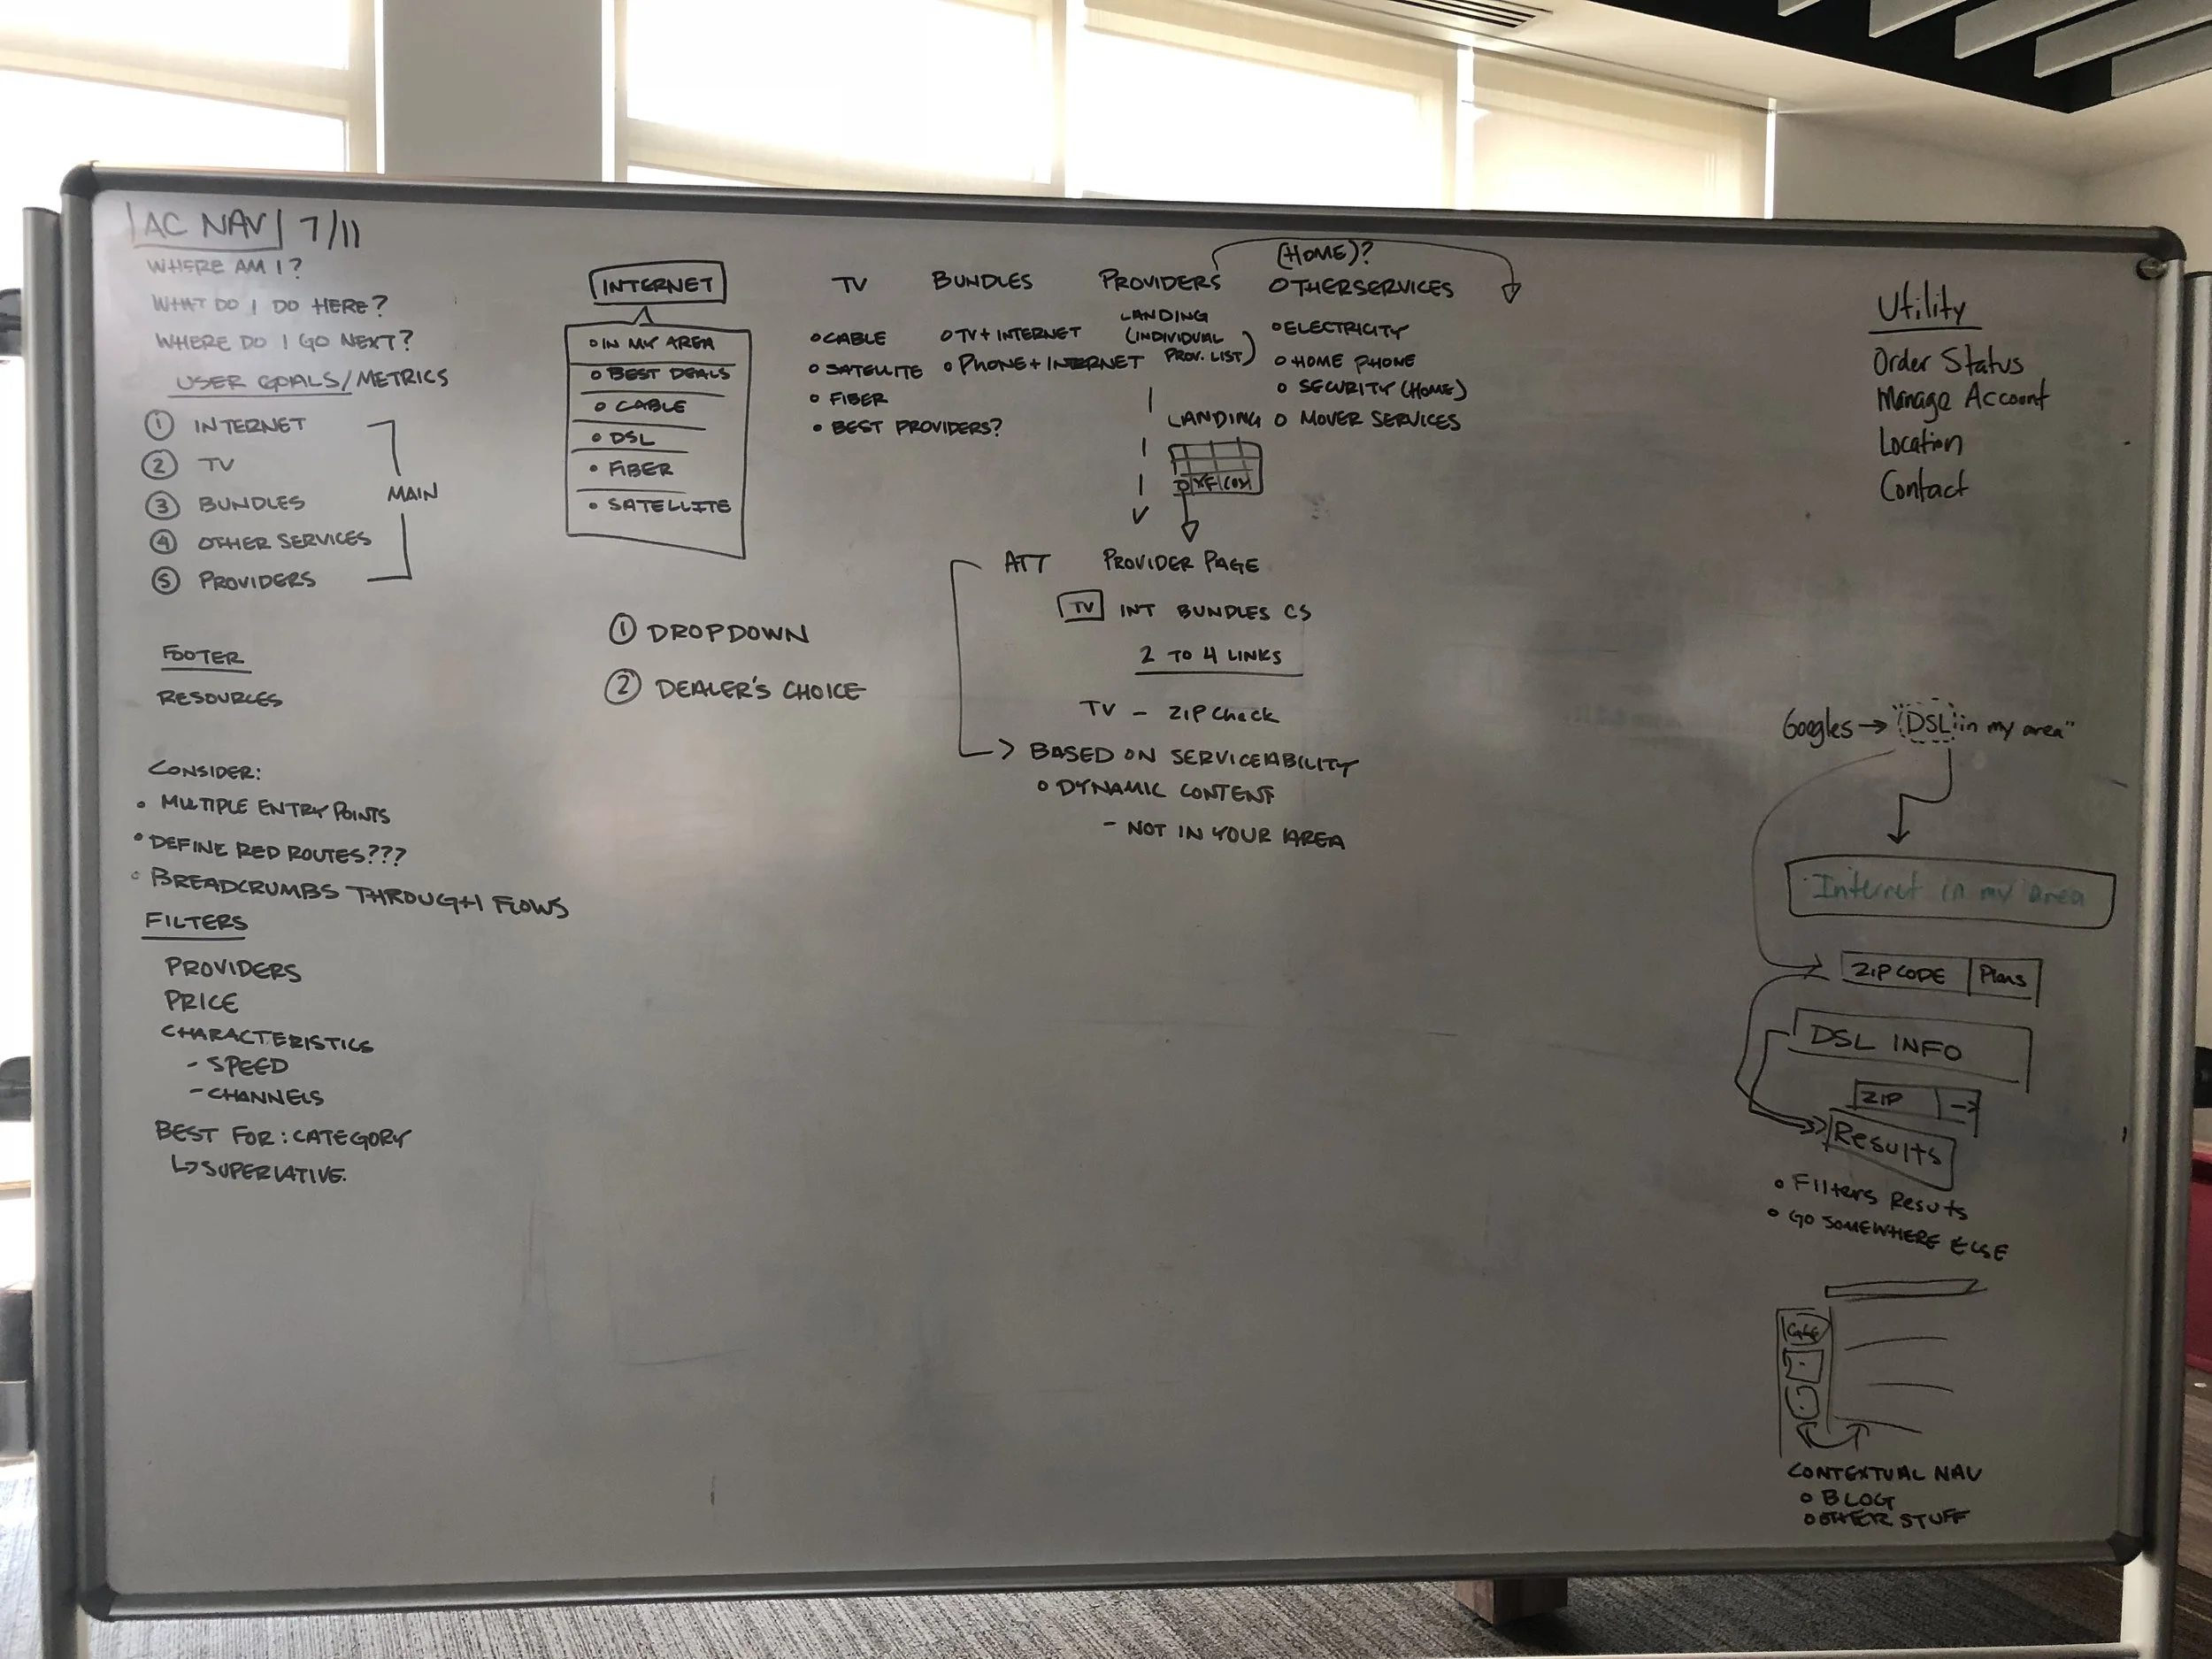 AC NAV 7/11
WHERE AM I?
WHAT DO I DO HERE?
WHERE DO I GO NEXT?
USER GOALS/METRICS
① INTERNET
② TV
③ BUNDLES
④ OTHER SERVICES
⑤ PROVIDERS
MAIN
FOOTER
RESOURCES
CONSIDER:
• MULTIPLE ENTRY POINTS
• DEFINE RED ROUTES???
• BREADCRUMBS THROUGH FLOWS
FILTERS
PROVIDERS
PRICE
CHARACTERISTICS
- SPEED
- CHANNELS
BEST FOR: CATEGORY
↳ SUPERLATIVE.
INTERNET
• IN MY AREA
• BEST DEALS
• CABLE
• DSL
• FIBER
• SATELLITE
① DROPDOWN
② DEALER'S CHOICE
TV
• CABLE
• SATELLITE
• FIBER
• BEST PROVIDERS?
BUNDLES
• TV + INTERNET
• PHONE + INTERNET
PROVIDERS
LANDING
(INDIVIDUAL
PROV. LIST)
LANDING
(HOME)?
OTHER SERVICES
• ELECTRICITY
• HOME PHONE
• SECURITY (HOME)
• MOVER SERVICES
ATT PROVIDER PAGE
TV INT BUNDLES CS
2 TO 4 LINKS
TV - ZIP Check
→ BASED ON SERVICEABILITY
• DYNAMIC CONTENT
- NOT IN YOUR AREA
Utility
Order Status
Manage Account
Location
Contact
Googles → "DSL in my area"
Internet in my area
ZIP CODE Plans
DSL INFO
ZIP →
Results
• Filters Resuts
• GO SOMEWHERE ELSE
CONTEXTUAL NAV
• BLOG
• OTHER STUFF